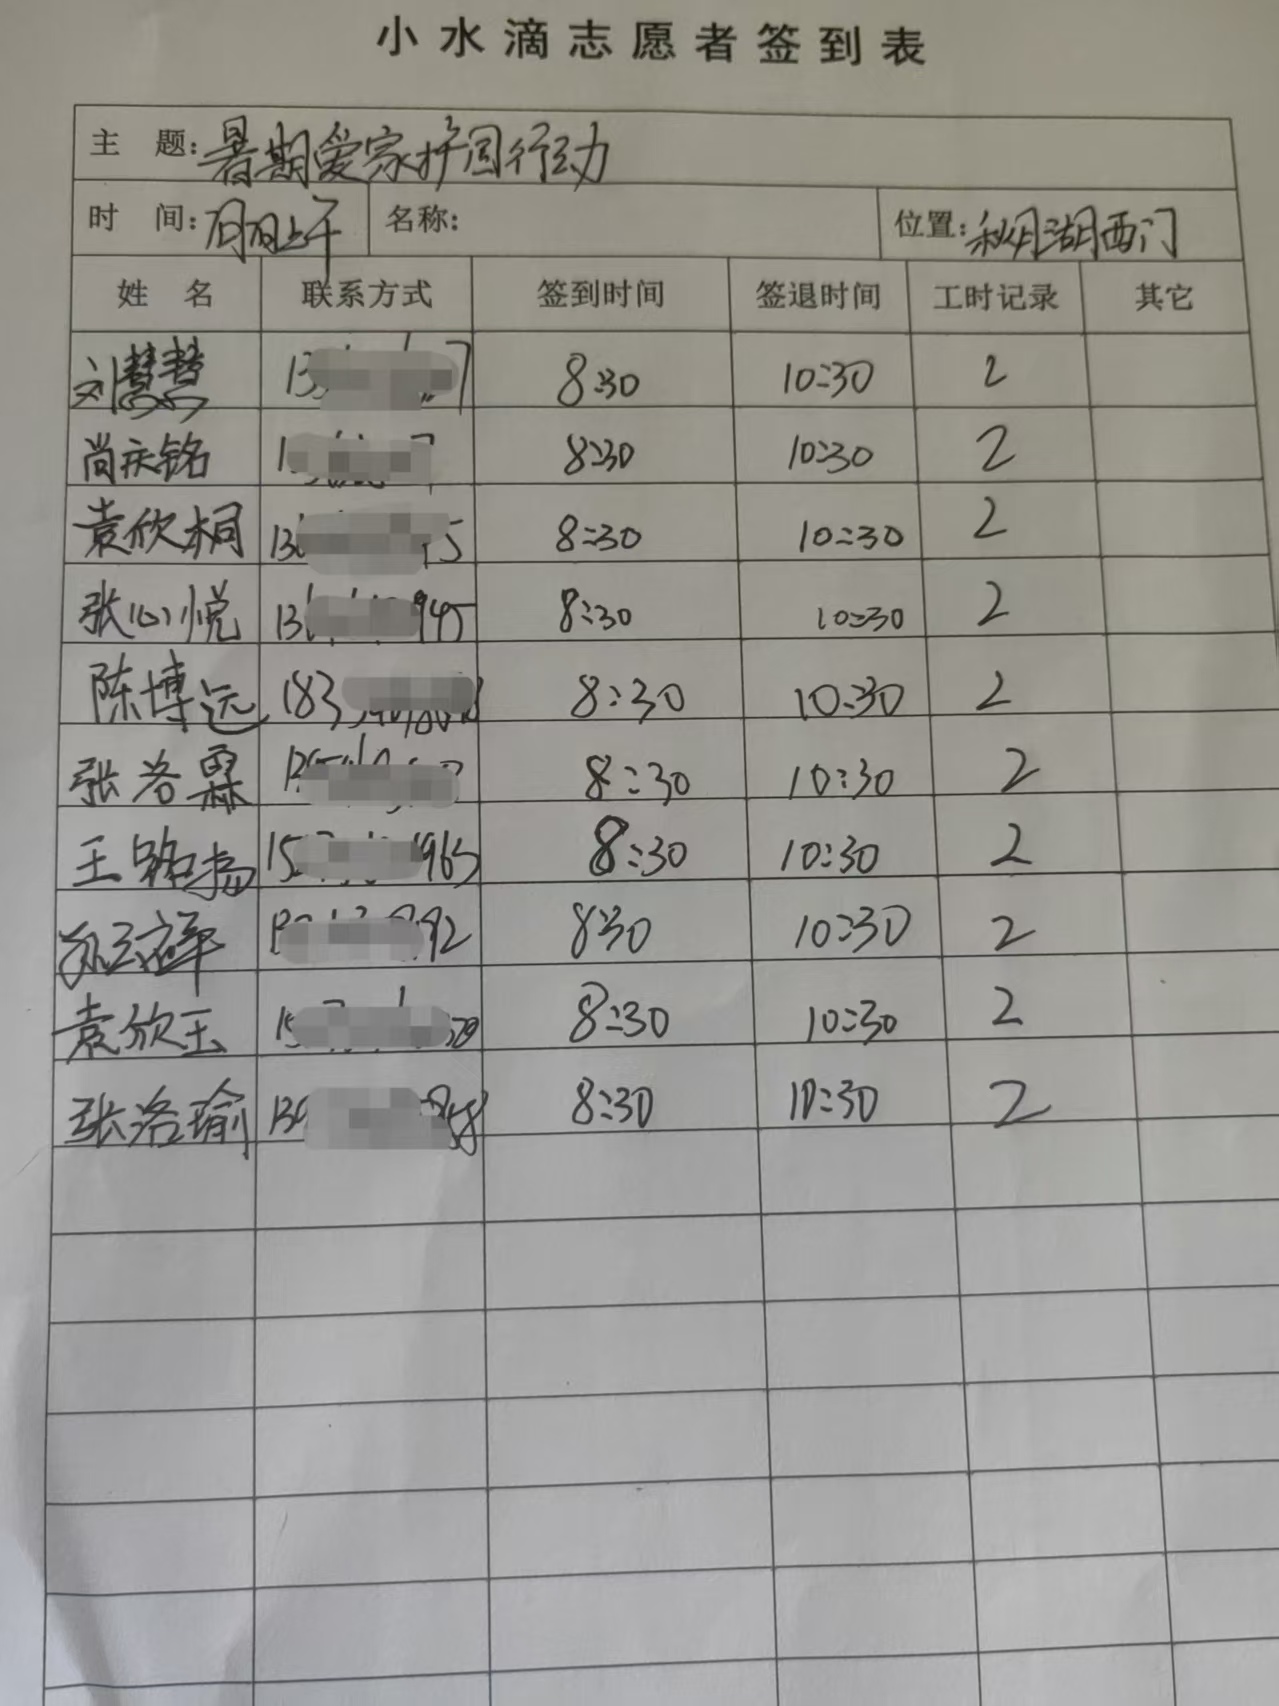 小水滴志愿者签到表
主 题:暑期爱家护园行动
时 间: 上午 名称: 位置:秋月湖西门
姓 名 联系方式 签到时间 签退时间 工时记录 其它
刘慧慧 8:30 10:30 2
尚庆铭 8:30 10:30 2
袁欣桐 8:30 10:30 2
张心悦 8:30 10:30 2
陈博远 183 8:30 10:30 2
张洛霖 8:30 10:30 2
王铭扬 8:30 10:30 2
8:30 10:30 2
袁欣玉 8:30 10:30 2
张洛瑜 8:30 10:30 2